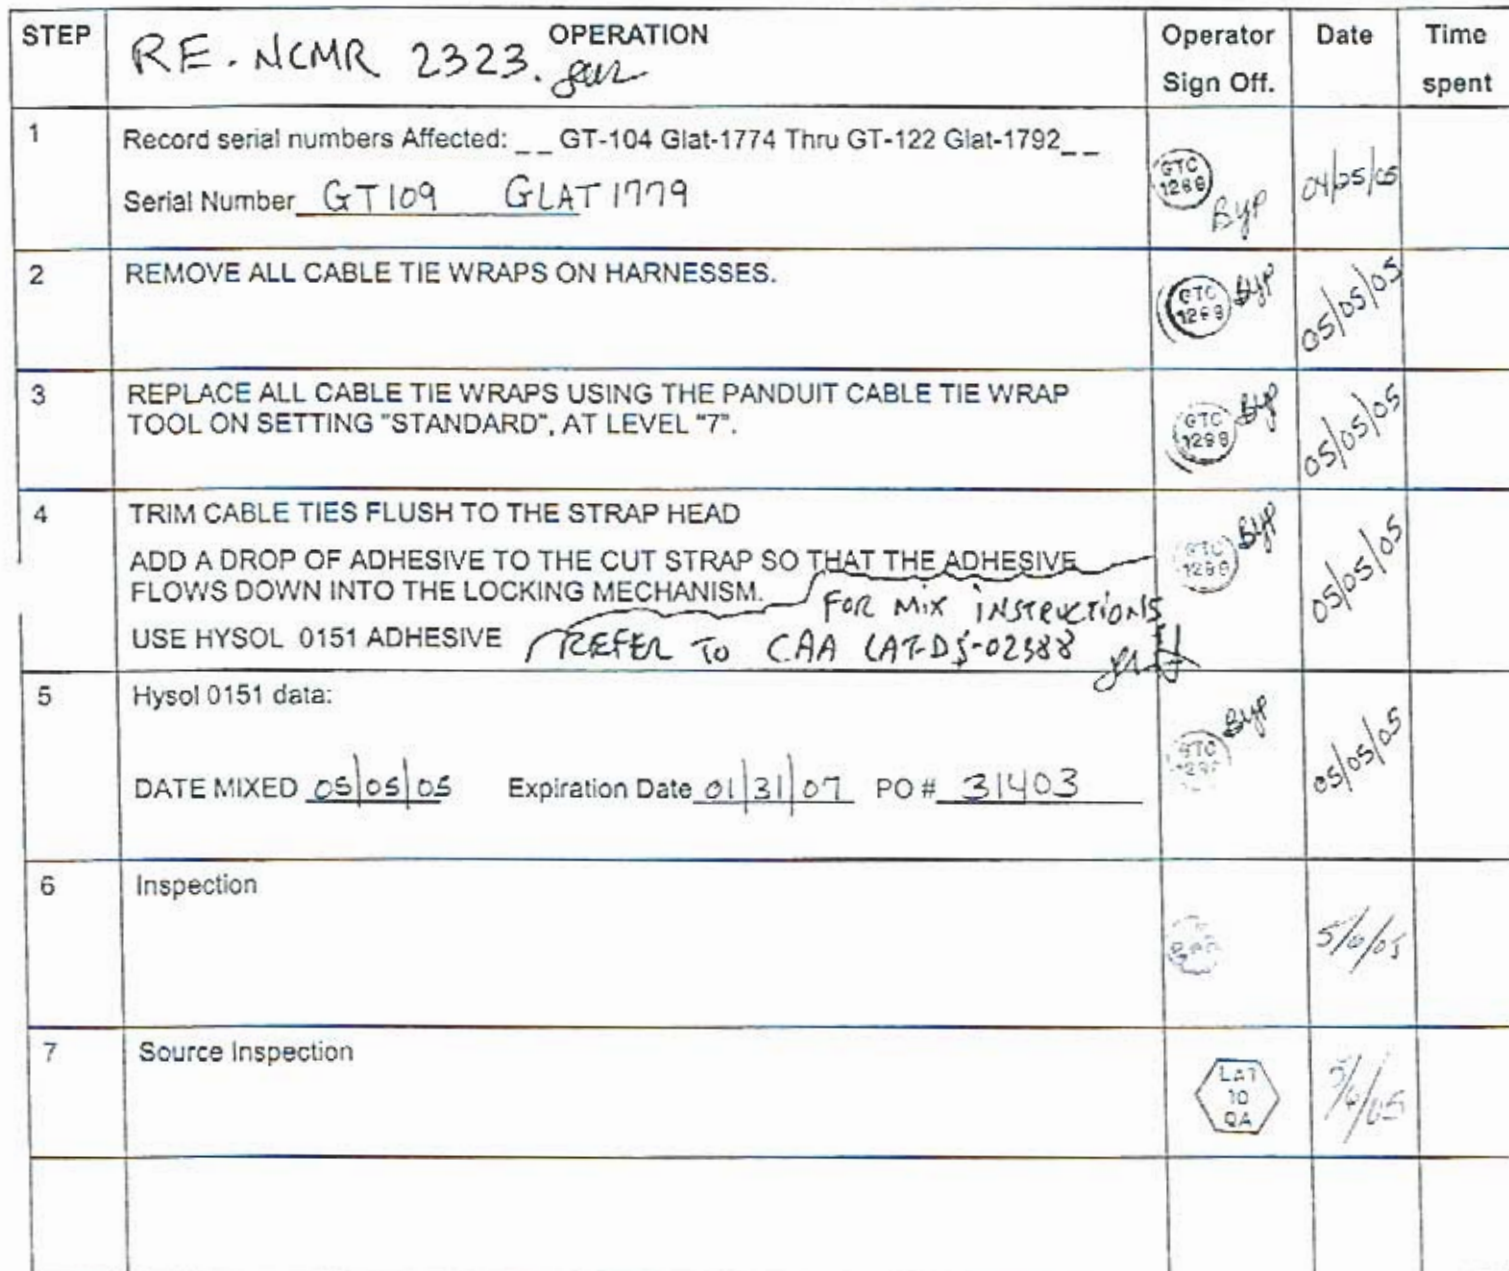 STEP OPERATION Operator Sign Off. Date Time spent
RE. NCMR 2323.
1 Record serial numbers Affected: _ _ GT-104 Glat-1774 Thru GT-122 Glat-1792_ _
Serial Number GT109 GLAT1779
GTC 1288 BYP 04/25/05
2 REMOVE ALL CABLE TIE WRAPS ON HARNESSES.
GTC 1288 BYP 05/05/05
3 REPLACE ALL CABLE TIE WRAPS USING THE PANDUIT CABLE TIE WRAP
TOOL ON SETTING "STANDARD", AT LEVEL "7".
GTC 1288 BYP 05/05/05
4 TRIM CABLE TIES FLUSH TO THE STRAP HEAD
ADD A DROP OF ADHESIVE TO THE CUT STRAP SO THAT THE ADHESIVE
FLOWS DOWN INTO THE LOCKING MECHANISM.
FOR MIX INSTRUCTIONS
USE HYSOL 0151 ADHESIVE REFER TO CAA LAT-DS-02388
GTC 1288 BYP 05/05/05
5 Hysol 0151 data:
DATE MIXED 05/05/05 Expiration Date 01/31/07 PO # 31403
GTC BYP 05/05/05
6 Inspection
5/6/05
7 Source Inspection
LAT
10
QA
5/6/05